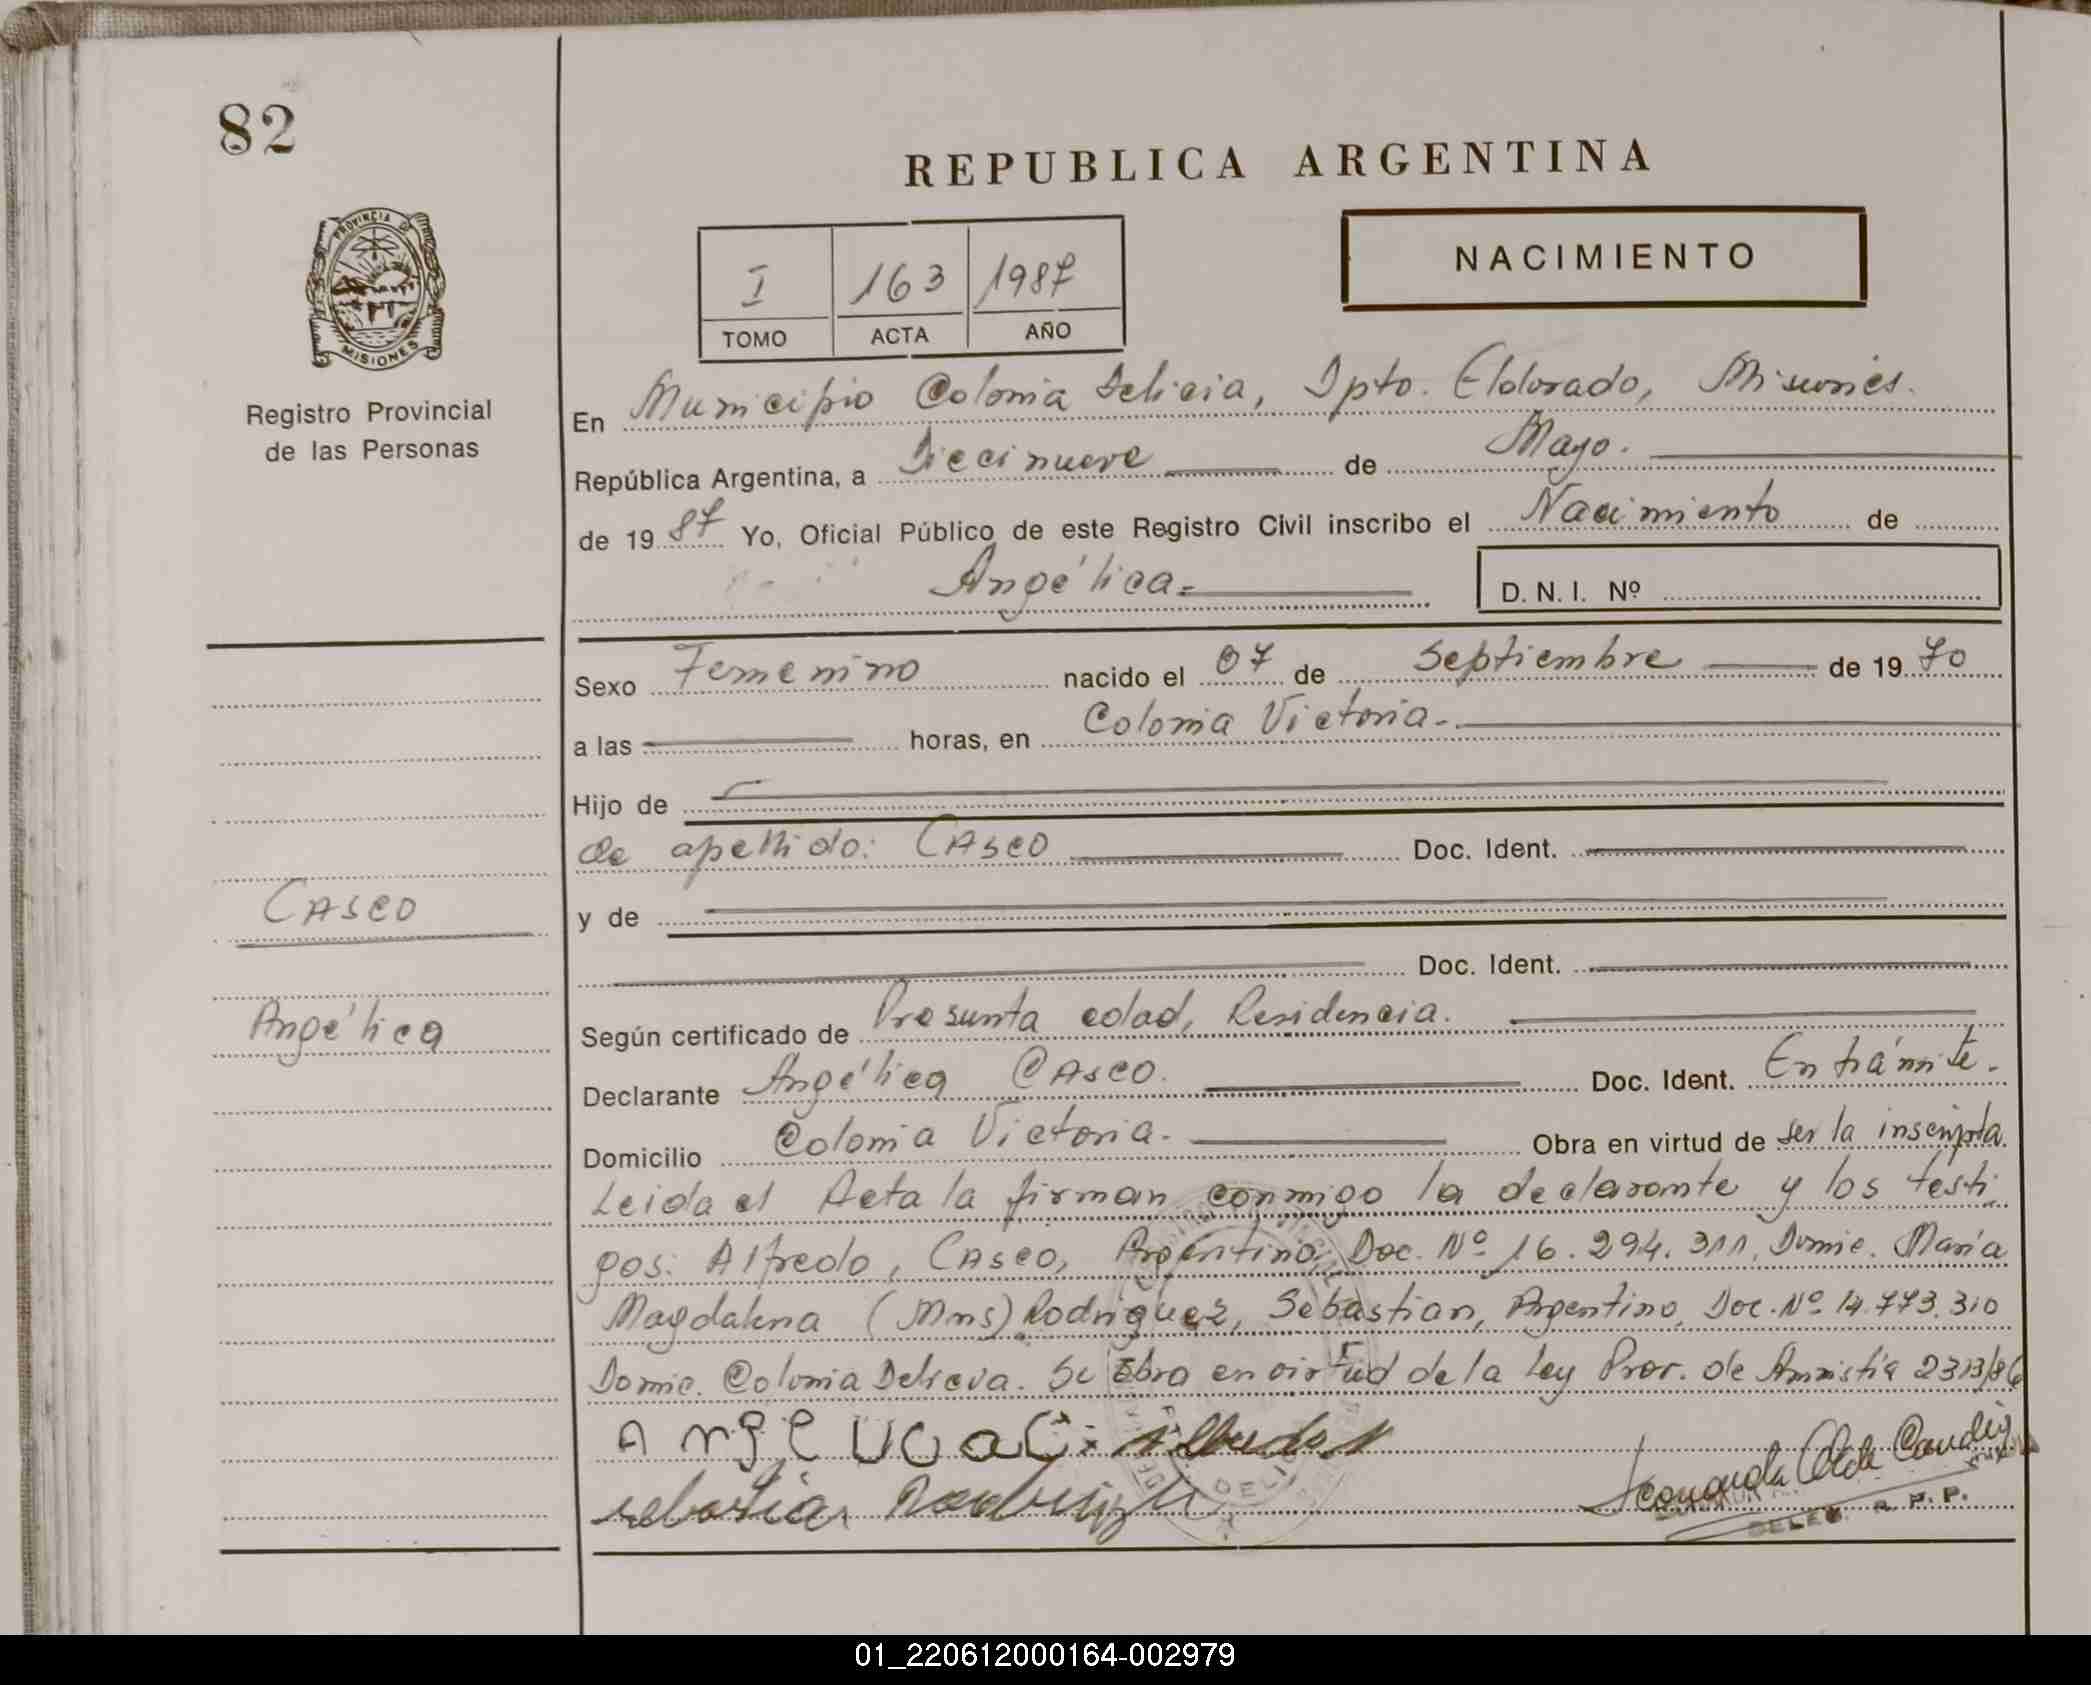 82
REPUBLICA ARGENTINA
PROVINCIA DE
MISIONES
Registro Provincial
de las Personas
NACIMIENTO
I 163 1987
TOMO ACTA AÑO
En Municipio Colonia Delicia, Dpto. Eldorado, Misiones.
República Argentina, a Diecinueve de Mayo.
de 1987 Yo, Oficial Público de este Registro Civil inscribo el Nacimiento de
Angélica.
D. N. I. Nº
Sexo Femenino nacido el 07 de Septiembre de 1970
a las horas, en Colonia Victoria.
Hijo de
de apellido: Casco Doc. Ident.
y de
Doc. Ident.
Casco
Angélica
Según certificado de Presunta edad, Residencia.
Declarante Angélica Casco. Doc. Ident. En trámite.
Domicilio Colonia Victoria. Obra en virtud de ser la inscripta.
Leida el Acta la firman conmigo la declarante y los testi
gos: Alfredo, Casco, Argentino, Doc. Nº 16.294.311, Domic. Maria
Magdalena (Mns) Rodriguez, Sebastian, Argentino, Doc. Nº 14.773.310
Domic. Colonia Delicia. Se obra en virtud de la Ley Prov. de Amnistia 2313/86
sebastian Rodriguez
DELEG. R. P. P.
01_220612000164-002979